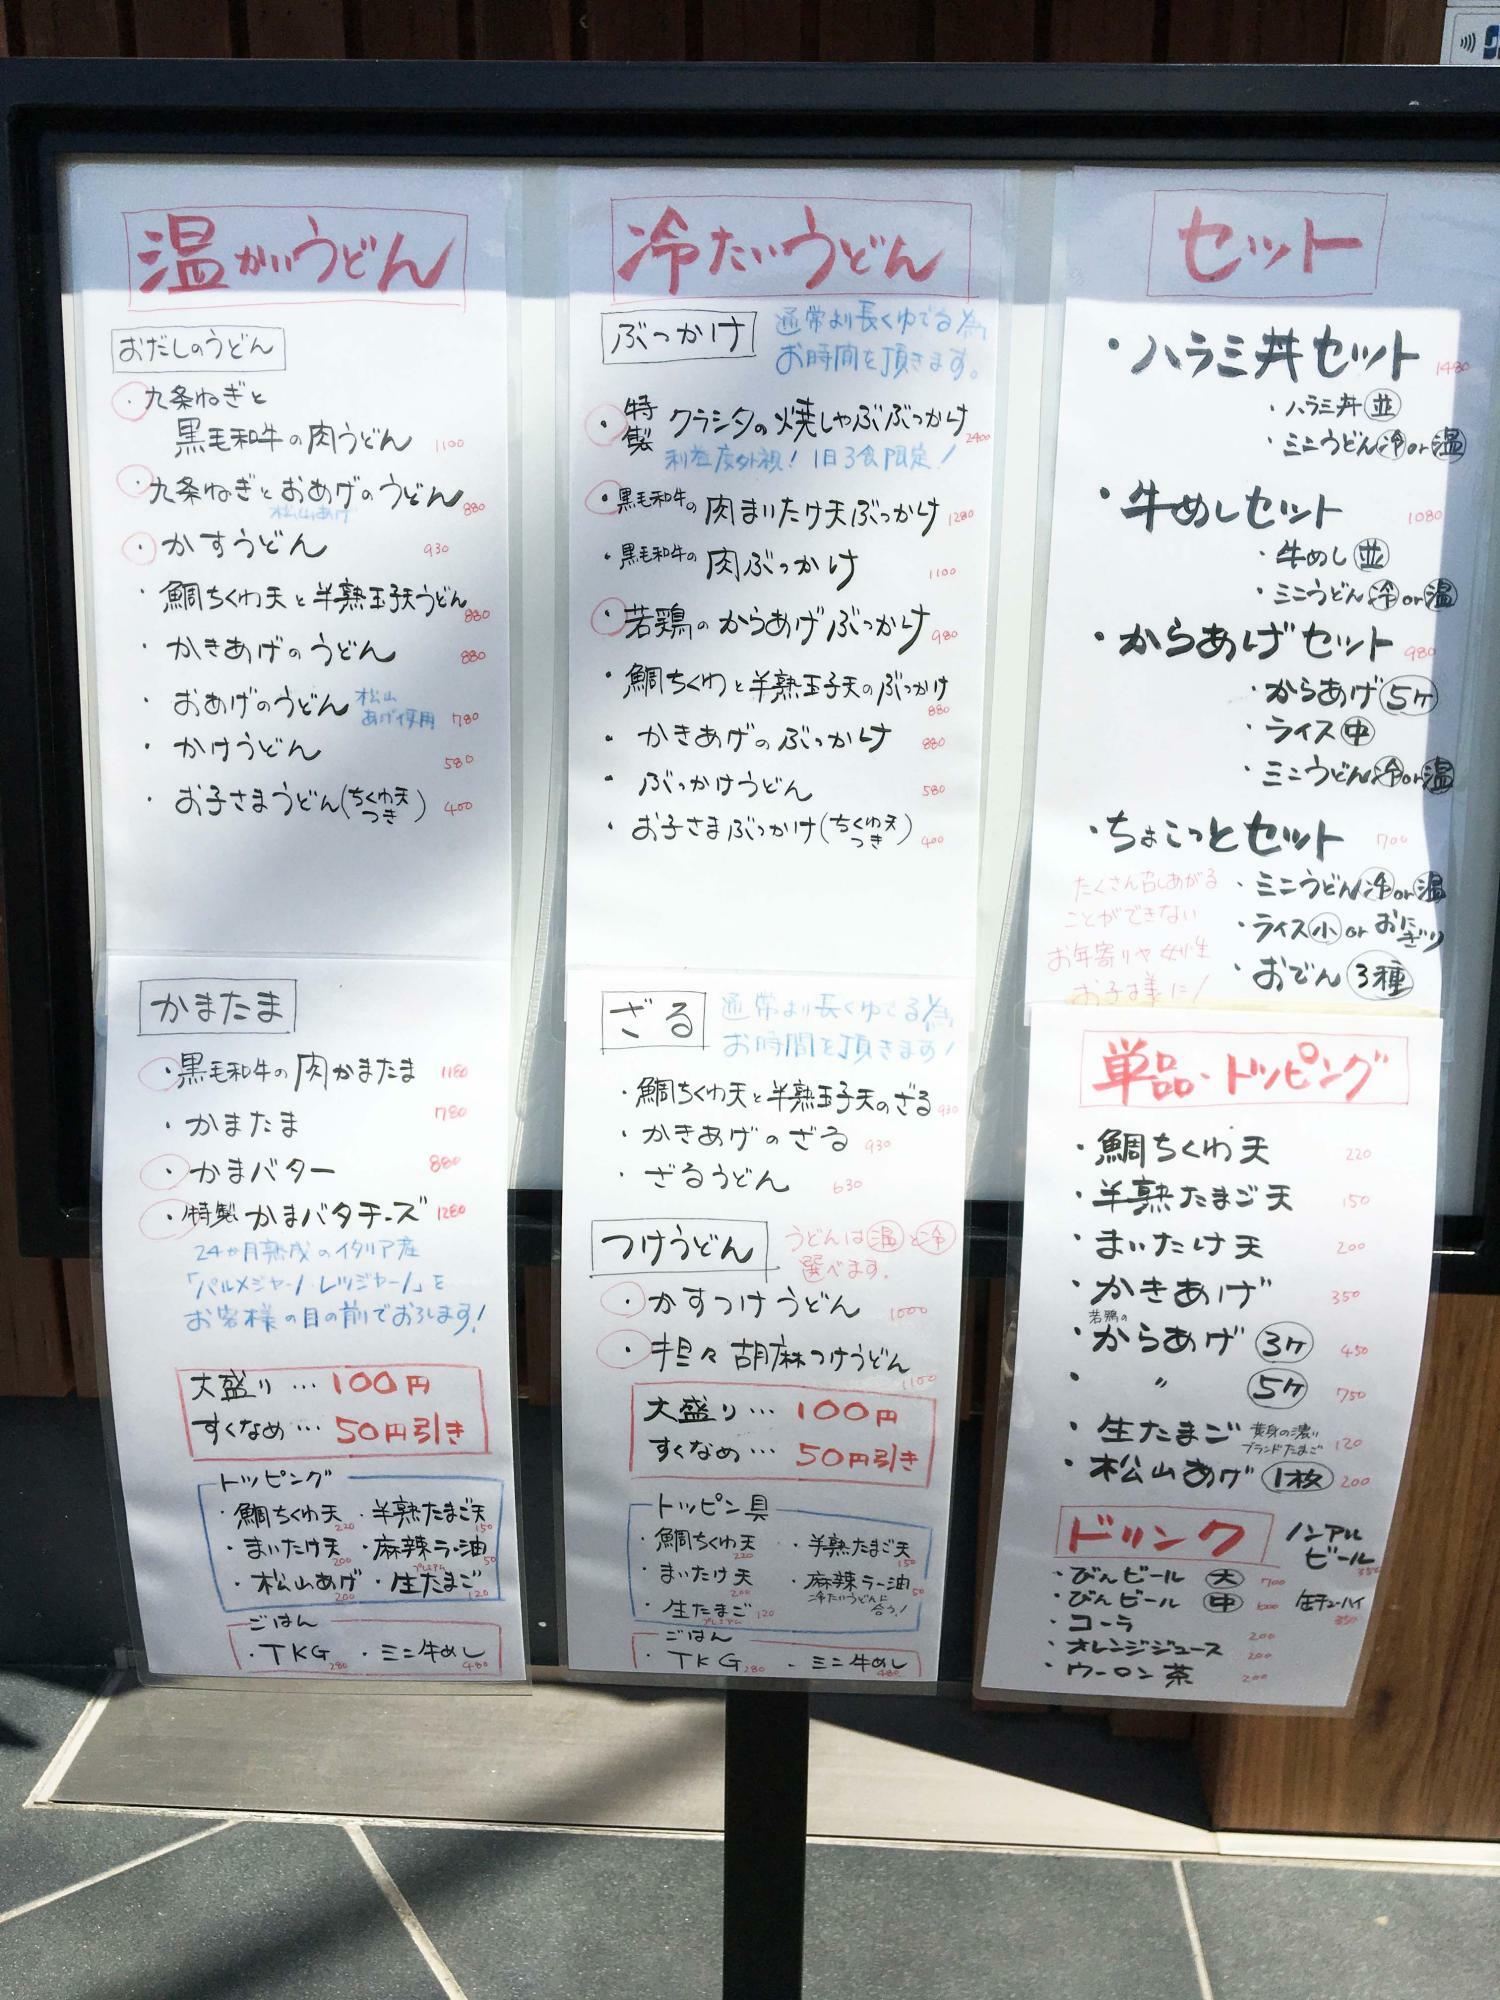 温かいうどん
おだしのうどん
・九条ねぎと
黒毛和牛の肉うどん 1100
・九条ねぎとおあげのうどん 880
松山あげ
・かすうどん 930
・鯛ちくわ天と半熟玉子天うどん 880
・かきあげのうどん 880
・おあげのうどん 松山あげ使用 780
・かけうどん 580
・お子さまうどん(ちくわ天つき) 400
かまたま
・黒毛和牛の肉かまたま 1180
・かまたま 780
・かまバター 880
・特製かまバタチーズ 1280
24か月熟成のイタリア産
「パルメジャーノ・レッジャーノ」を
お客様の目の前でおろします!
大盛り…100円
すくなめ…50円引き
トッピング
・鯛ちくわ天 220 ・半熟たまご天 150
・まいたけ天 200 ・麻辣ラー油 50
・松山あげ 200 ・プレミアム生たまご 120
ごはん
・TKG 280 ・ミニ牛めし 480
冷たいうどん
ぶっかけ
通常より長くゆでる為
お時間を頂きます。
・特製 クラシタの焼しゃぶぶっかけ 2400
利益度外視! 1日3食限定!
・黒毛和牛の肉まいたけ天ぶっかけ 1280
・黒毛和牛の肉ぶっかけ 1100
・若鶏のからあげぶっかけ 980
・鯛ちくわと半熟玉子天のぶっかけ 880
・かきあげのぶっかけ 880
・ぶっかけうどん 580
・お子さまぶっかけ(ちくわ天つき) 400
ざる
通常より長くゆでる為
お時間を頂きます!
・鯛ちくわ天と半熟玉子天のざる 930
・かきあげのざる 930
・ざるうどん 630
つけうどん
うどんは温と冷
選べます。
・かすつけうどん 1000
・担々胡麻つけうどん 1100
大盛り…100円
すくなめ…50円引き
トッピン具
・鯛ちくわ天 220 ・半熟たまご天 150
・まいたけ天 200 ・麻辣ラー油 50
冷たいうどんに合う!
・生たまご 120
プレミアム
ごはん
・TKG 280 ・ミニ牛めし 480
セット
・ハラミ丼セット 1480
・ハラミ丼 並
・ミニうどん 冷or温
・牛めしセット 1080
・牛めし 並
・ミニうどん 冷or温
・からあげセット 980
・からあげ 5ヶ
・ライス 中
・ミニうどん 冷or温
・ちょこっとセット 700
たくさん召しあがる
ことができない
お年寄りや女性
お子様に!
・ミニうどん 冷or温
・ライス 小 or おにぎり
・おでん 3種
単品・トッピング
・鯛ちくわ天 220
・半熟たまご天 150
・まいたけ天 200
・かきあげ 350
若鶏の
・からあげ 3ヶ 450
・〃 5ヶ 750
・生たまご 黄身の濃いブランドたまご 120
・松山あげ 1枚 200
ドリンク
ノンアルビール 350
・びんビール 大 700
・びんビール 中 600
缶チューハイ 350
・コーラ 200
・オレンジジュース 200
・ウーロン茶 200